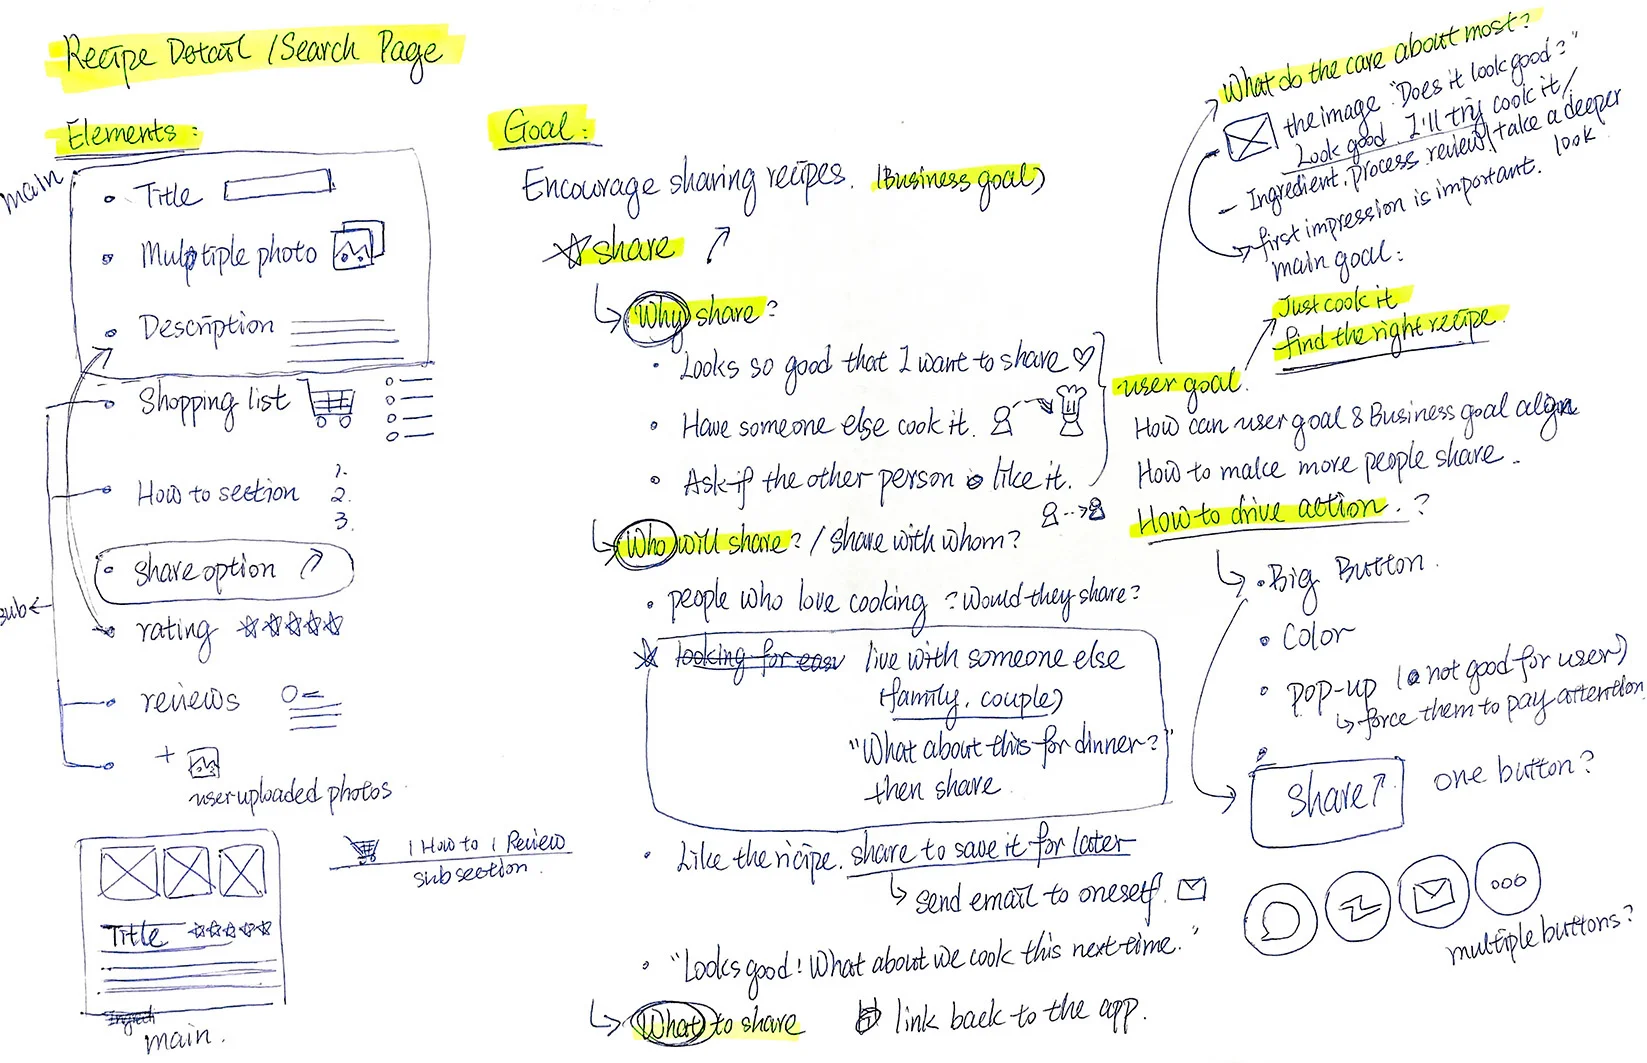 Recipe Detail / Search Page
Elements:
main
• Title
• Multiple photo
• Description
• Shopping list
• How to section
1.
2.
3.
• Share option
sub
• rating
• reviews
• +
user uploaded photos
Title
main.
| How to | Review
sub section.
Goal:
Encourage sharing recipes. (Business goal)
share
Why share?
• Looks so good that I want to share
• Have someone else cook it.
• Ask if the other person like it.
Who will share? / Share with whom?
• people who love cooking ? Would they share?
looking for easy live with someone else
family, couple)
"What about this for dinner?"
then share
• Like the ricipe. share to save it for later
send email to oneself.
• "Looks good! What about we cook this next time."
What to share
link back to the app.
What do the care about most?
the image "Does it look good?"
Look good. I'll try cook it /
- Ingredient, process, review / take a deeper
look
first impression is important.
main goal:
Just cook it
find the right recipe.
user goal.
How can user goal & Business goal align
How to make more people share.
How to drive action.?
• Big Button.
• Color
• Pop-up ( not good for user)
force them to pay attention
•
Share
one button?
multiple buttons?